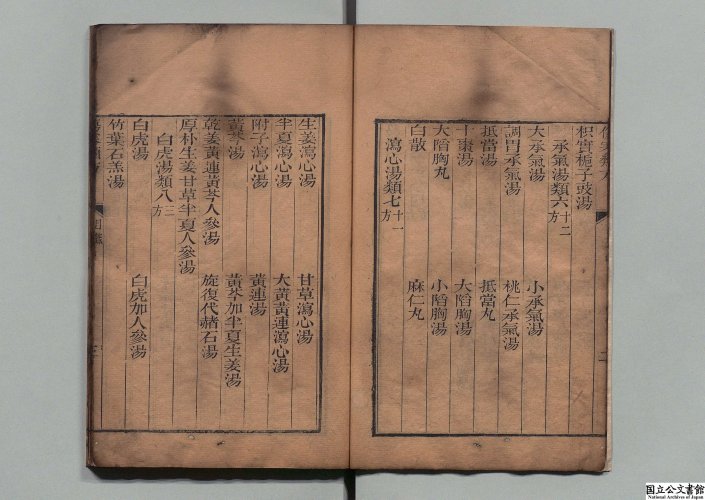 枳實梔子豉湯
承氣湯類六十二方
大承氣湯　小承氣湯
調胃承氣湯　桃仁承氣湯
抵當湯　抵當丸
十棗湯　大陷胸湯
大陷胸丸　小陷胸湯
白散　麻仁丸
瀉心湯類七十一方
生姜瀉心湯　甘草瀉心湯
半夏瀉心湯　大黃黃連瀉心湯
附子瀉心湯　黃連湯
黃芩湯　黃芩加半夏生姜湯
乾姜黃連黃芩人參湯　旋復代赭石湯
厚朴生姜甘草半夏人參湯
白虎湯類八三方
白虎湯　白虎加人參湯
竹葉石羔湯
国立公文書館
National Archives of Japan